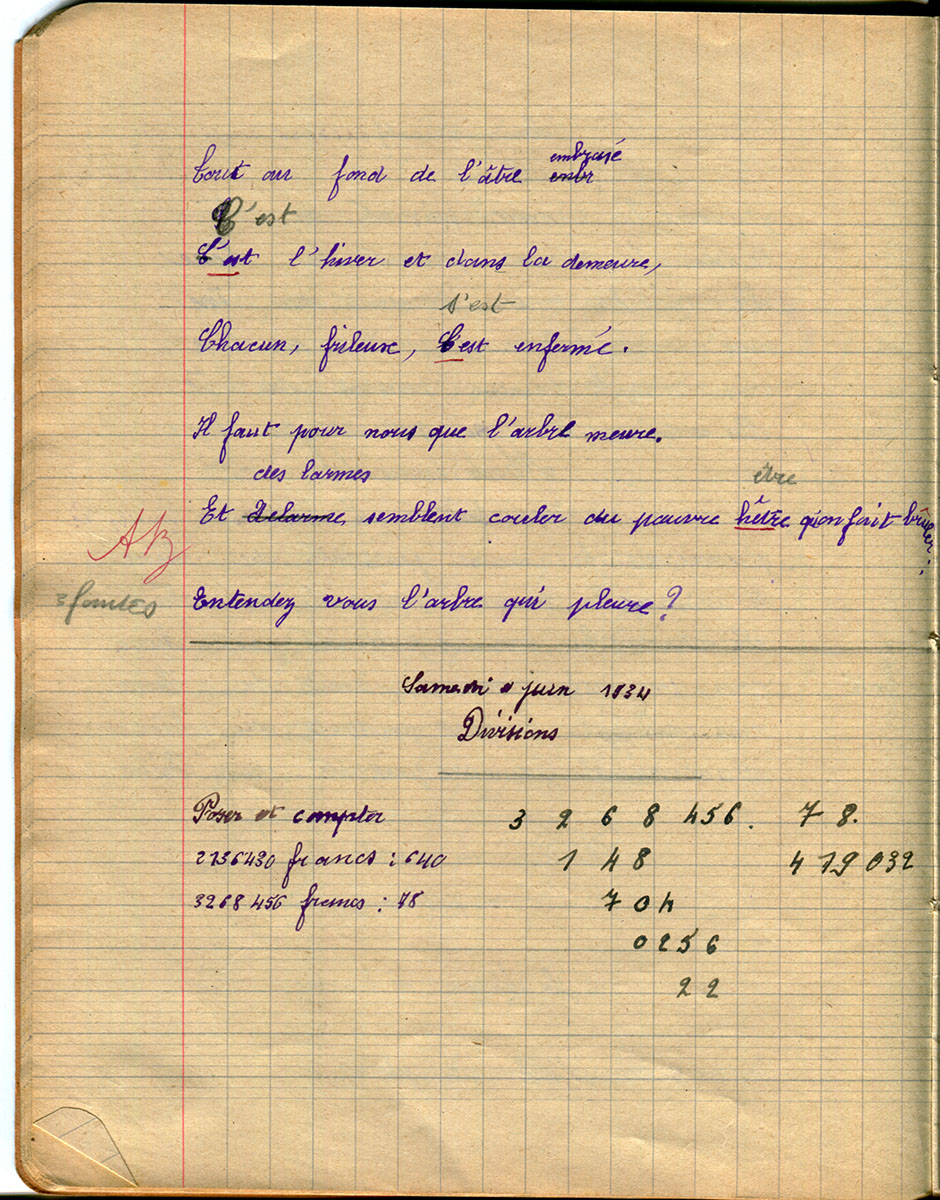 Tout au fond de l'âtre embrasé enbr
C'est
C'est l'hiver et dans la demeure,
s'est
Chacun, frileux, C'est enfermé.
Il faut pour nous que l'arbre meure.
des larmes être
Et Delarme semblent couler du pauvre hêtre qu'on fait brûler.
AB
3 fautes
Entendez vous l'arbre qui pleure ?
Samedi juin 1934
Divisions
Poser et compter 3 2 6 8 456. 7 8.
2736430 francs : 640 1 4 8 4 19 032
3268 456 francs : 78 7 0 4
0256
2 2